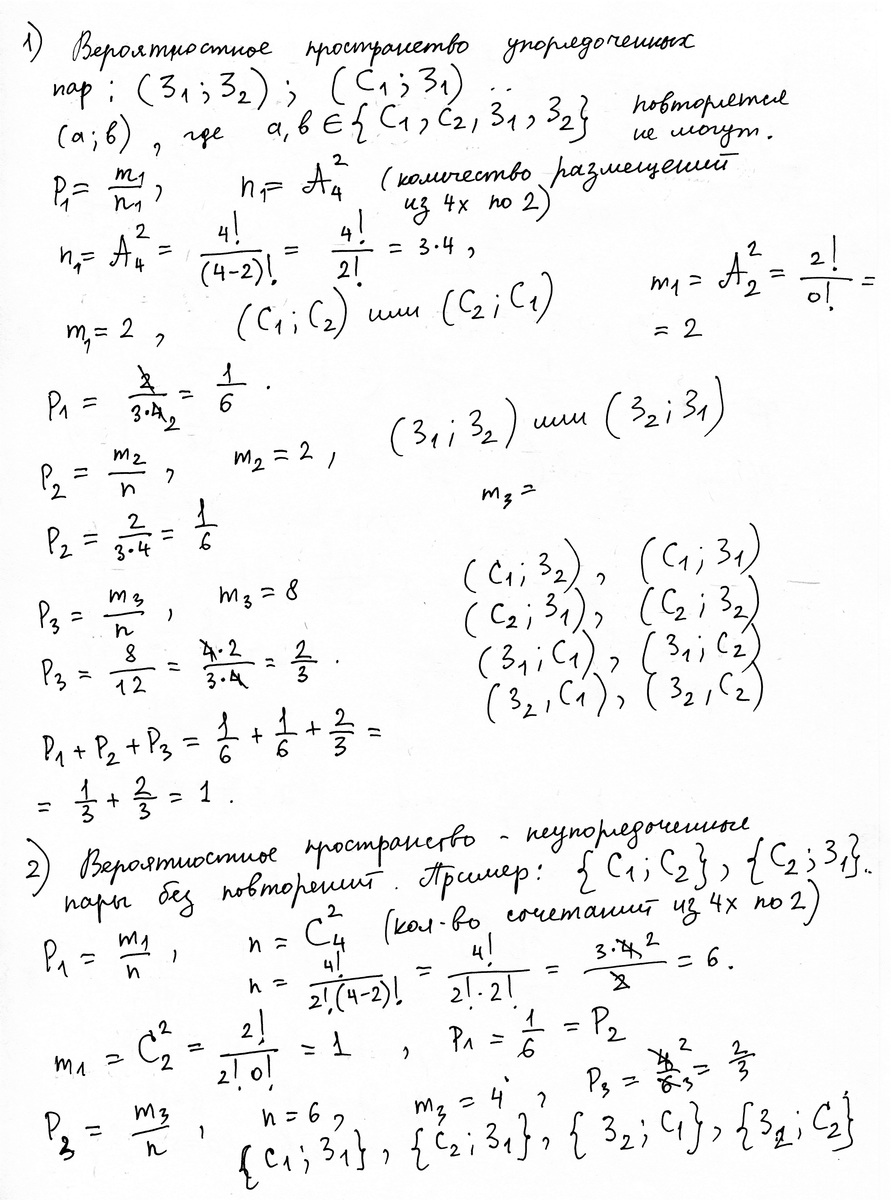 1) Вероятностное пространство упорядоченных
пар: (З₁; З₂); (С₁; З₁) ..
(а; в), где а, в ∈ {С₁, С₂, З₁, З₂} повторяется
не могут.
P₁ = m₁/n₁, n₁ = A₄² (количество размещений
из 4х по 2)
n₁ = A₄² = 4!/(4-2)! = 4!/2! = 3·4,
m₁ = A₂² = 2!/0! =
= 2
m₁ = 2, (С₁; С₂) или (С₂; С₁)
P₁ = 2/3·4₂ = 1/6.
P₂ = m₂/n, m₂ = 2, (З₁; З₂) или (З₂; З₁)
P₂ = 2/3·4 = 1/6
m₃ =
(С₁; З₂), (С₁; З₁)
(С₂; З₁), (С₂; З₂)
(З₁; С₁), (З₁; С₂)
(З₂, С₁), (З₂, С₂)
P₃ = m₃/n, m₃ = 8
P₃ = 8/12 = 4·2/3·4 = 2/3.
P₁ + P₂ + P₃ = 1/6 + 1/6 + 2/3 =
= 1/3 + 2/3 = 1.
2) Вероятностное пространство - неупорядоченные
пары без повторений. Пример: {С₁; С₂}, {С₂; З₁}..
P₁ = m₁/n, n = C₄² (кол-во сочетаний из 4х по 2)
n = 4!/2!(4-2)! = 4!/2!·2! = 3·4²/2 = 6.
m₁ = C₂² = 2!/2!0! = 1, P₁ = 1/6 = P₂
P₃ = m₃/n, n = 6, m₃ = 4, P₃ = 4²/6₃ = 2/3
{С₁; З₁}, {С₂; З₁}, {З₂; С₁}, {З₂; С₂}